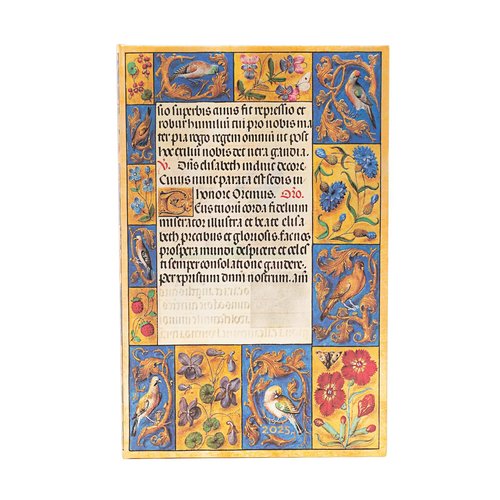 sio superbis anus fit repressio et
robur humiliū cui pro nobis ma
ter pia rego regem omniū ut post
hoc exiliū nobis det vera gaudia.
V. Diis elisabeth in dive decore.
Cuius nunc parata est sedis in
honore Oremus. Oro.
Tui corda fidelium
miserator illustra et beate elisa
beth precibus et gloriosis. fac nos
prospera mundi despicere et celes
ti semper consolatione gaudere.
Per xpristum dnm nostrum. am
2025